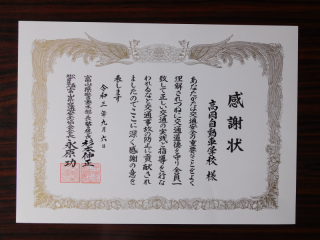 感謝状
高岡自動車学校 様
あなたは交通安全の重要なことをよく
理解されつねに交通道徳を守り全員一
致して正しい交通の実践と指導を行な
われるなど交通事故の防止に貢献され
ましたのでここに深く感謝の意を
表します
令和三年九月六日
富山県警察本部長
永原功